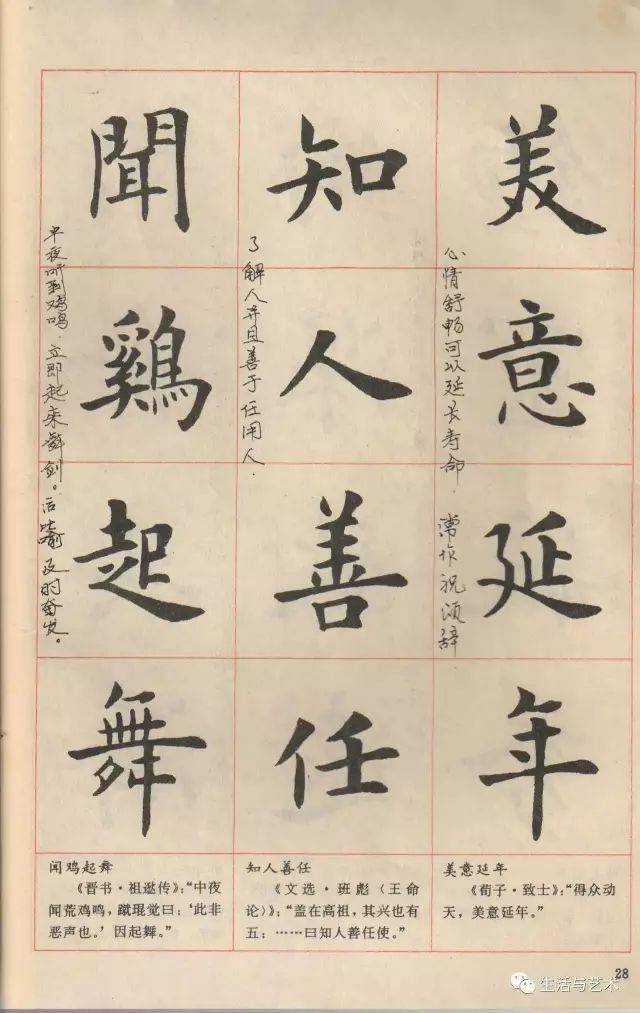 美意延年
心情舒畅可以延长寿命. 常作祝颂辞
知人善任
了解人并且善于任用人.
聞鷄起舞
半夜听到鸡鸣.立即起来舞剑。后比喻及时奋发。
闻鸡起舞
《晋书·祖逖传》:“中夜
闻荒鸡鸣，蹴琨觉曰：‘此非
恶声也。’因起舞。”
知人善任
《文选·班彪(王命
论)》:“盖在高祖，其兴也有
五：……曰知人善任使。”
美意延年
《荀子·致士》:“得众动
天，美意延年。”
28
生活与艺术